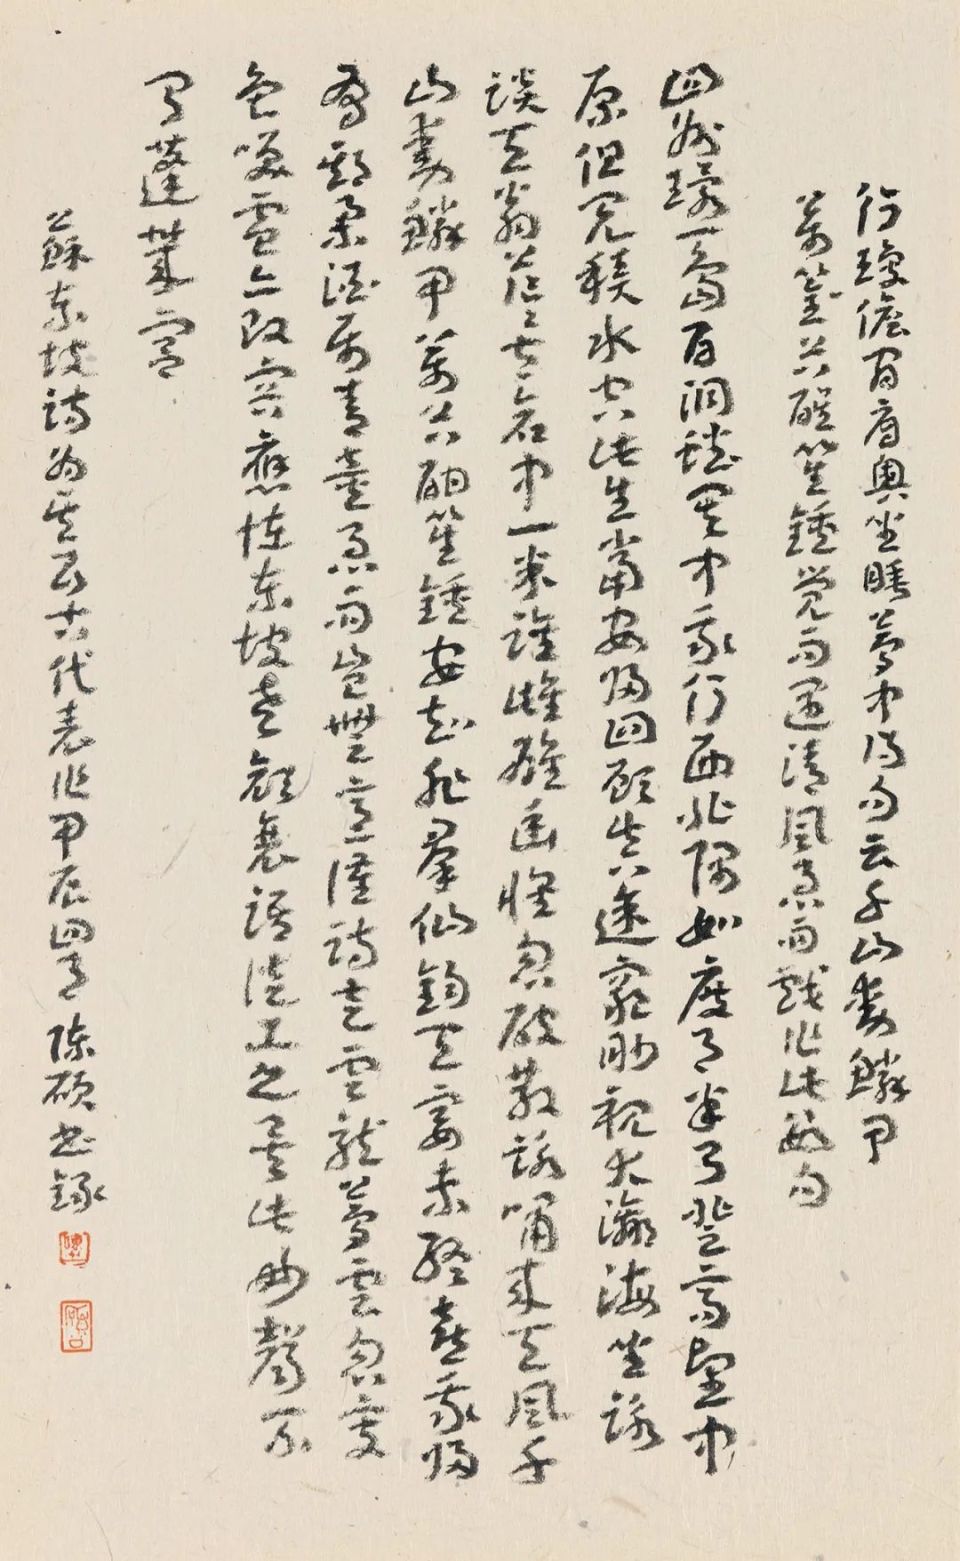 行瓊儋間肩輿坐睡夢中得句云千山動鱗甲
萬谷酣笙鍾覺而遇清風急雨戲作此數句
四州環一島百洞蟠其中我行西北隅如度月半弓登高望中
原但見積水空此生當安歸四顧真途窮眇觀大瀛海坐詠
談天翁茫茫太倉中一米誰雌雄幽懷忽破散詠嘯來天風千
山動鱗甲萬谷酣笙鍾安知非群仙鈞天宴未終喜我歸
有期舉酒屬青童急雨豈無意催詩走雲龍夢雲忽變
色笑電亦改容應怪東坡老顏衰語徒工久矣此妙聲不
聞蓬萊宮
蘇東坡詩為其五古代表作甲辰四月 陳碩書錄